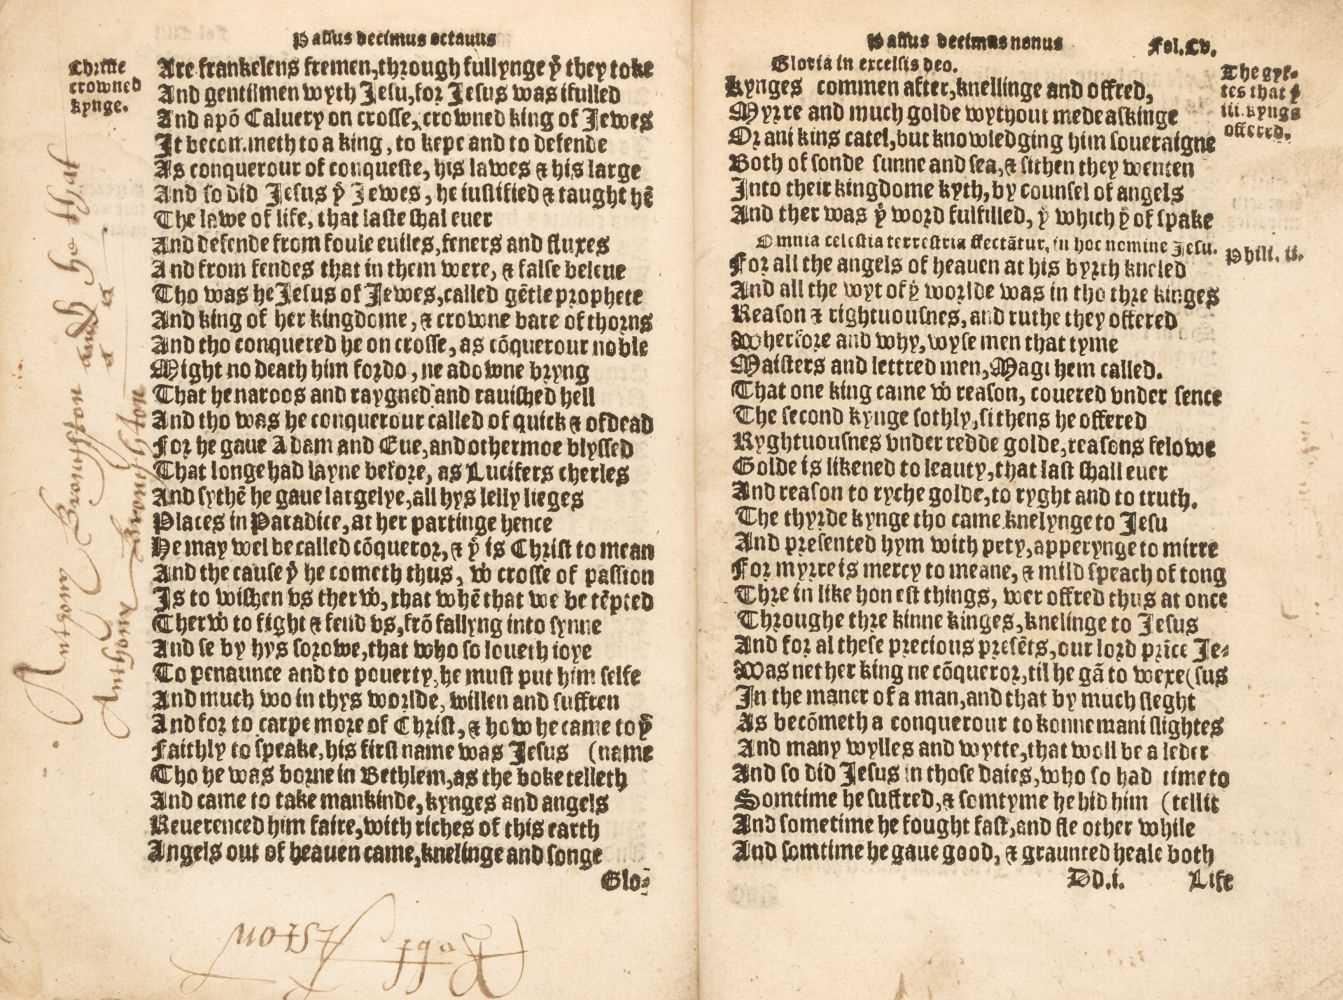 Passus decimus octauus
Christe
crowned
kynge.
Are frankelens fremen, through fullynge yͭ they toke
And gentilmen wyth Jesu, for Jesus was ifulled
And apō Caluery on crosse, crowned king of Jewes
It becommeth to a king, to kepe and to defende
As conquerour of conqueste, his lawes & his large
And so did Jesus yͤ Jewes, he iustified & taught hē
The lawe of life, that laste shal euer
And defende from foule euiles, feners and fluxes
And from fendes that in them were, & false beleue
Tho was he Jesus of Jewes, called gētle prophete
And king of her kingdome, & crowne bare of thorns
And tho conquered he on crosse, as cōquerour noble
Might no death him fordo, ne adowne bryng
That he naroos and raygned and rauished hell
And tho was he conquerour called of quick & of dead
For he gaue Adam and Eue, and othermoe blyssed
That longe had layne before, as Lucifers cherles
And sythē he gaue largelye, all hys lelly lieges
Places in Paradice, at her partinge hence
He may wel be called cōqueror, & yͭ is Christ to mean
And the cause yͭ he cometh thus, wͭ crosse of passion
Is to wishen vs therwͭ, that whē that we be tēpted
Therwͭ to fight & fend vs, frō fallyng into synne
And se by hys sorowe, that who so loueth ioye
To penaunce and to pouerty, he must put him selfe
And much wo in thys worlde, willen and suffren
And for to carpe more of Christ, & how he came to yͭ
Faithly to speake, his first name was Jesus (name
Tho he was borne in Bethlem, as the boke telleth
And came to take mankinde, kynges and angels
Reuerenced him faire, with riches of this earth
Angels out of heauen came, knelinge and songe
Glo-
Robt Aston
Passus decimus nonus
Fol.Cv.
Gloria in excelsis deo.
The gyf-
tes that yͤ
iii. kyngs
offered.
Kynges commen after, knellinge and offred,
Myrre and much golde wythout mede askinge
Or ani kins catel, but knowledging him soueraigne
Both of sonde sunne and sea, & sithen they wenten
Into their kingdome kyth, by counsel of angels
And ther was yͤ word fulfilled, yͤ which yͧ of spake
Omnia celestia terrestria flectātur, in hoc nomine Jesu.
Phili. ii.
For all the angels of heauen at his byrth kneled
And all the wyt of yͤ worlde was in tho thre kinges
Reason & rightuousnes, and ruthe they offered
Wherfore and why, wyse men that tyme
Maisters and lettred men, Magi hem called.
That one king came wͭ reason, couered vnder sence
The second kynge sothly, sithens he offered
Ryghtuousnes vnder redde golde, reasons felowe
Golde is likened to leauty, that last shall euer
And reason to ryche golde, to ryght and to truth.
The thyrde kynge tho came knelynge to Jesu
And presented hym with pety, apperynge to mirre
For myrre is mercy to meane, & mild speach of tong
Thre in like honest things, wer offred thus at once
Throughe thre kinne kinges, knelinge to Jesus
And for al these precious presēts, our lord prīce Je-
Was nether king ne cōqueror, til he gā to wexe (sus
In the maner of a man, and that by much sleght
As becōmeth a conquerour to konne mani slightes
And many wylles and wytte, that woll be a leder
And so did Jesus in those daies, who so had time to
Somtime he suffred, & somtyme he hid him (tellit
And sometime he fought fast, and fle other while
And somtime he gaue good, & graunted heale both
Dd.i.
Life